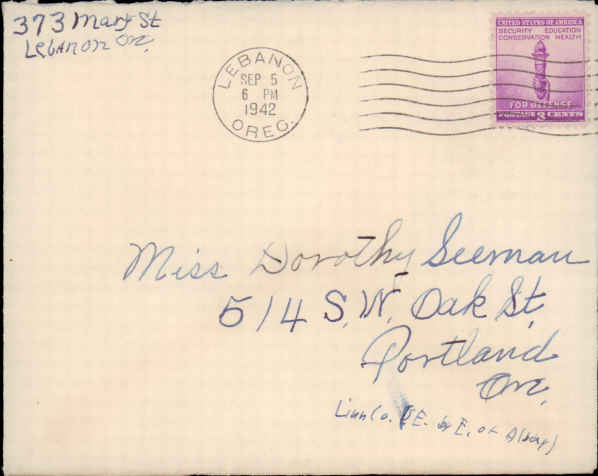 373 Mary St
Lebanon Or.
LEBANON
SEP 5
6 PM
1942
OREG.
UNITED STATES OF AMERICA
SECURITY EDUCATION
CONSERVATION HEALTH
FOR DEFENSE
3 CENTS
Miss Dorothy Seeman
514 S.W. Oak St.
Portland
Or.
Linn Co. E. by E. of Albany)